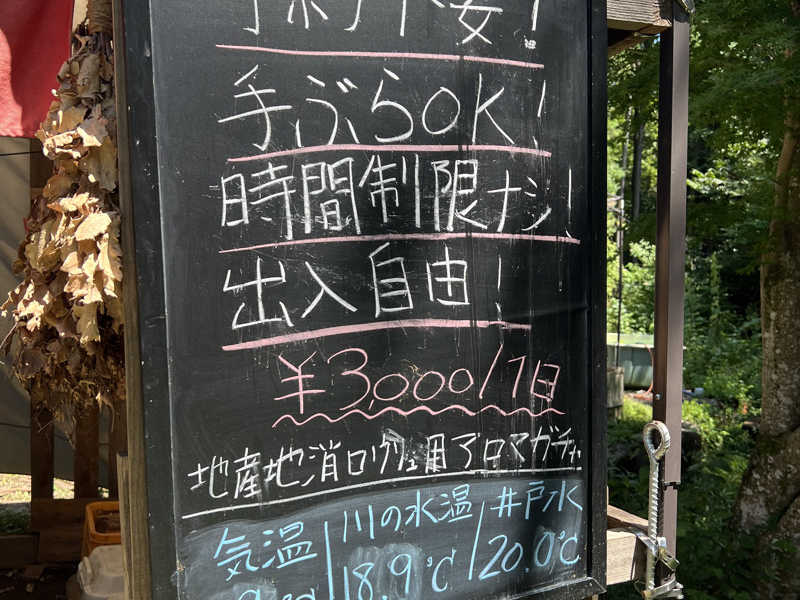 手ぶらOK!
時間制限ナシ!
出入自由!
¥3,000/1日
地産地消ロウリュ用アロマガチャ
気温 川の水温 井戸水
18.9℃ 20.0℃